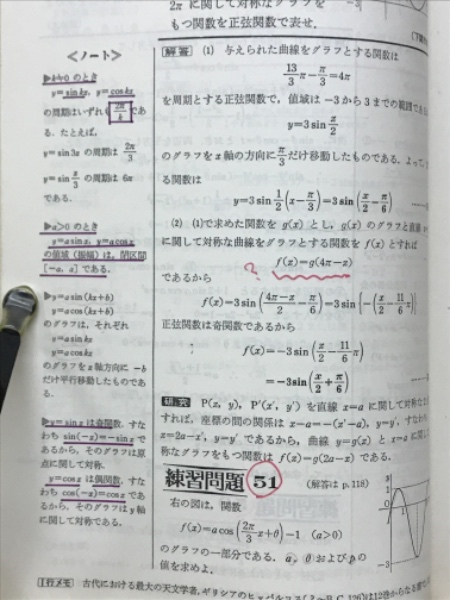 2π に関して対称なグラフを
もつ関数を正弦関数で表せ.
＜ノート＞
▶k≠0 のとき
y=sin kx, y=cos kx
の周期はいずれも 2π/k であ
る. たとえば,
y=sin 3x の周期は 2π/3
y=sin x/3 の周期は 6π
である.
▶a>0 のとき
y=a sin x, y=a cos x
の値域（振幅）は, 閉区間
[-a, a] である.
▶y=a sin(kx+b)
y=a cos(kx+b)
のグラフは, それぞれ
y=a sin kx
y=a cos kx
のグラフを x 軸方向に
だけ平行移動したものであ
る.
▶y=sin x は奇関数. すな
わち sin(-x)=-sin x で
あるから, そのグラフは原
点に関して対称.
y=cos x は偶関数. すな
わち cos(-x)=cos x であ
るから, そのグラフは y 軸
に関して対称である.
解答 (1) 与えられた曲線をグラフとする関数は
13/3 π - π/3 = 4π
を周期とする正弦関数で, 値域は -3 から 3 までの範囲であ
y=3 sin x/2
のグラフを x 軸の方向に π/3 だけ移動したものである. よって,
る関数は
y=3 sin 1/2 (x - π/3) = 3 sin (x/2 - π/6)
(2) (1)で求めた関数を g(x) とし, g(x) のグラフと直線
に関して対称な曲線をグラフとする関数を f(x) とすれば
? f(x)=g(4π-x)
であるから
f(x)=3 sin ((4π-x)/2 - π/6) = 3 sin {-(x/2 - 11/6 π)}
正弦関数は奇関数であるから
f(x)=-3 sin (x/2 - 11/6 π)
=-3 sin (x/2 + π/6)
研究 P(x, y), P'(x', y') を直線 x=a に関して対称な
すれば, 座標の間の関係は x-a=-(x'-a), y=y', すなわち
x=2a-x', y=y' であるから, 曲線 y=g(x) と x=a に関し
称なグラフをもつ関数は f(x)=g(2a-x) である.
練習問題 51 (解答は p.118)
右の図は, 関数
f(x)=a cos (2π/3 x+θ)-1 (a>0)
のグラフの一部分である. a, θ および p の
値を求めよ.
y
1
-3
1行メモ 古代における最大の天文学者, ギリシアのヒッパルコス